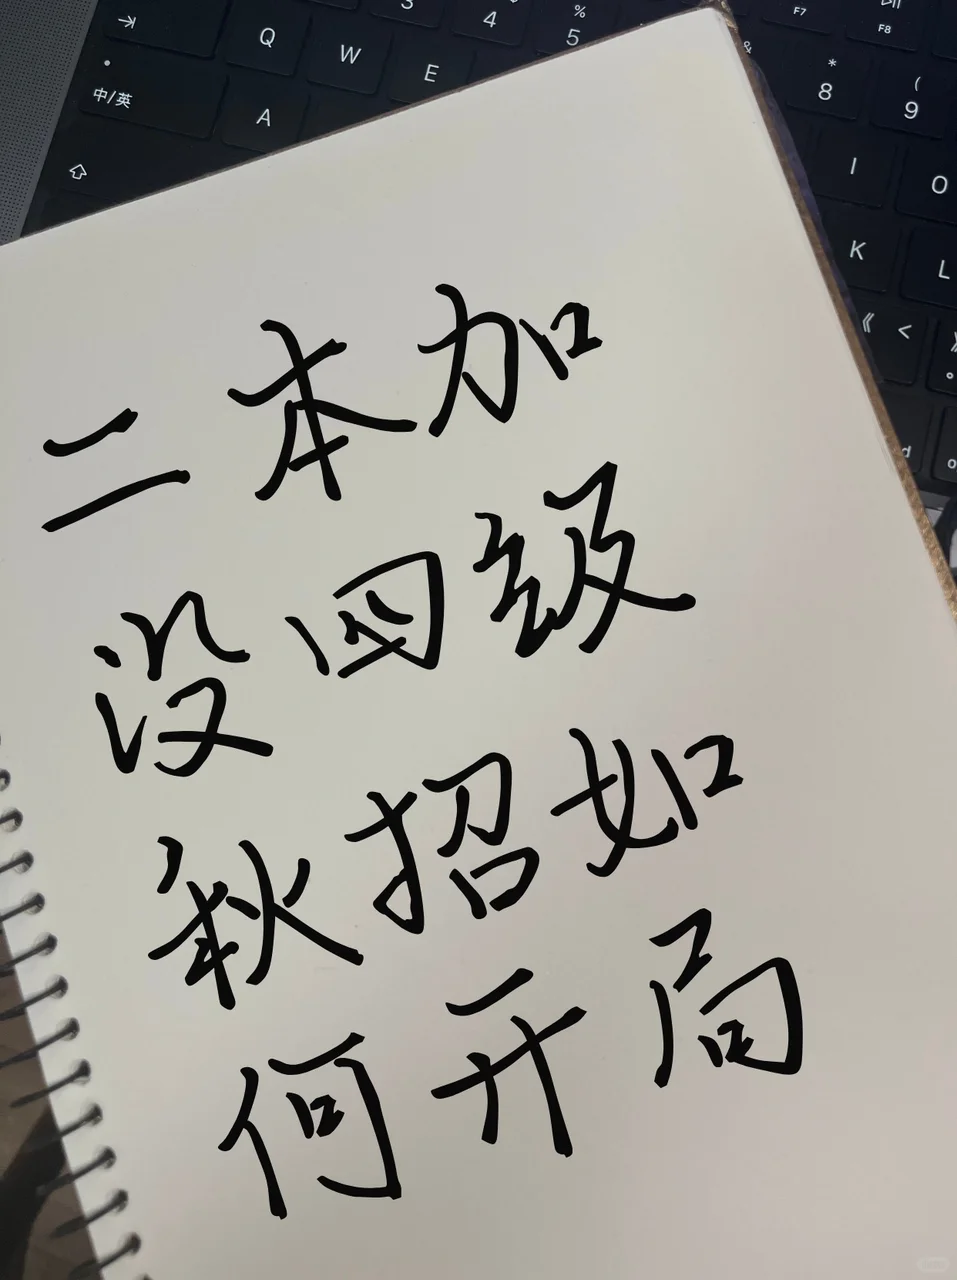 二本加
没四级
秋招如
何开局
Q W E
3 4 % 5
中/英 A
F7 F8
& * 8 ( 9
I O
K L
《 <